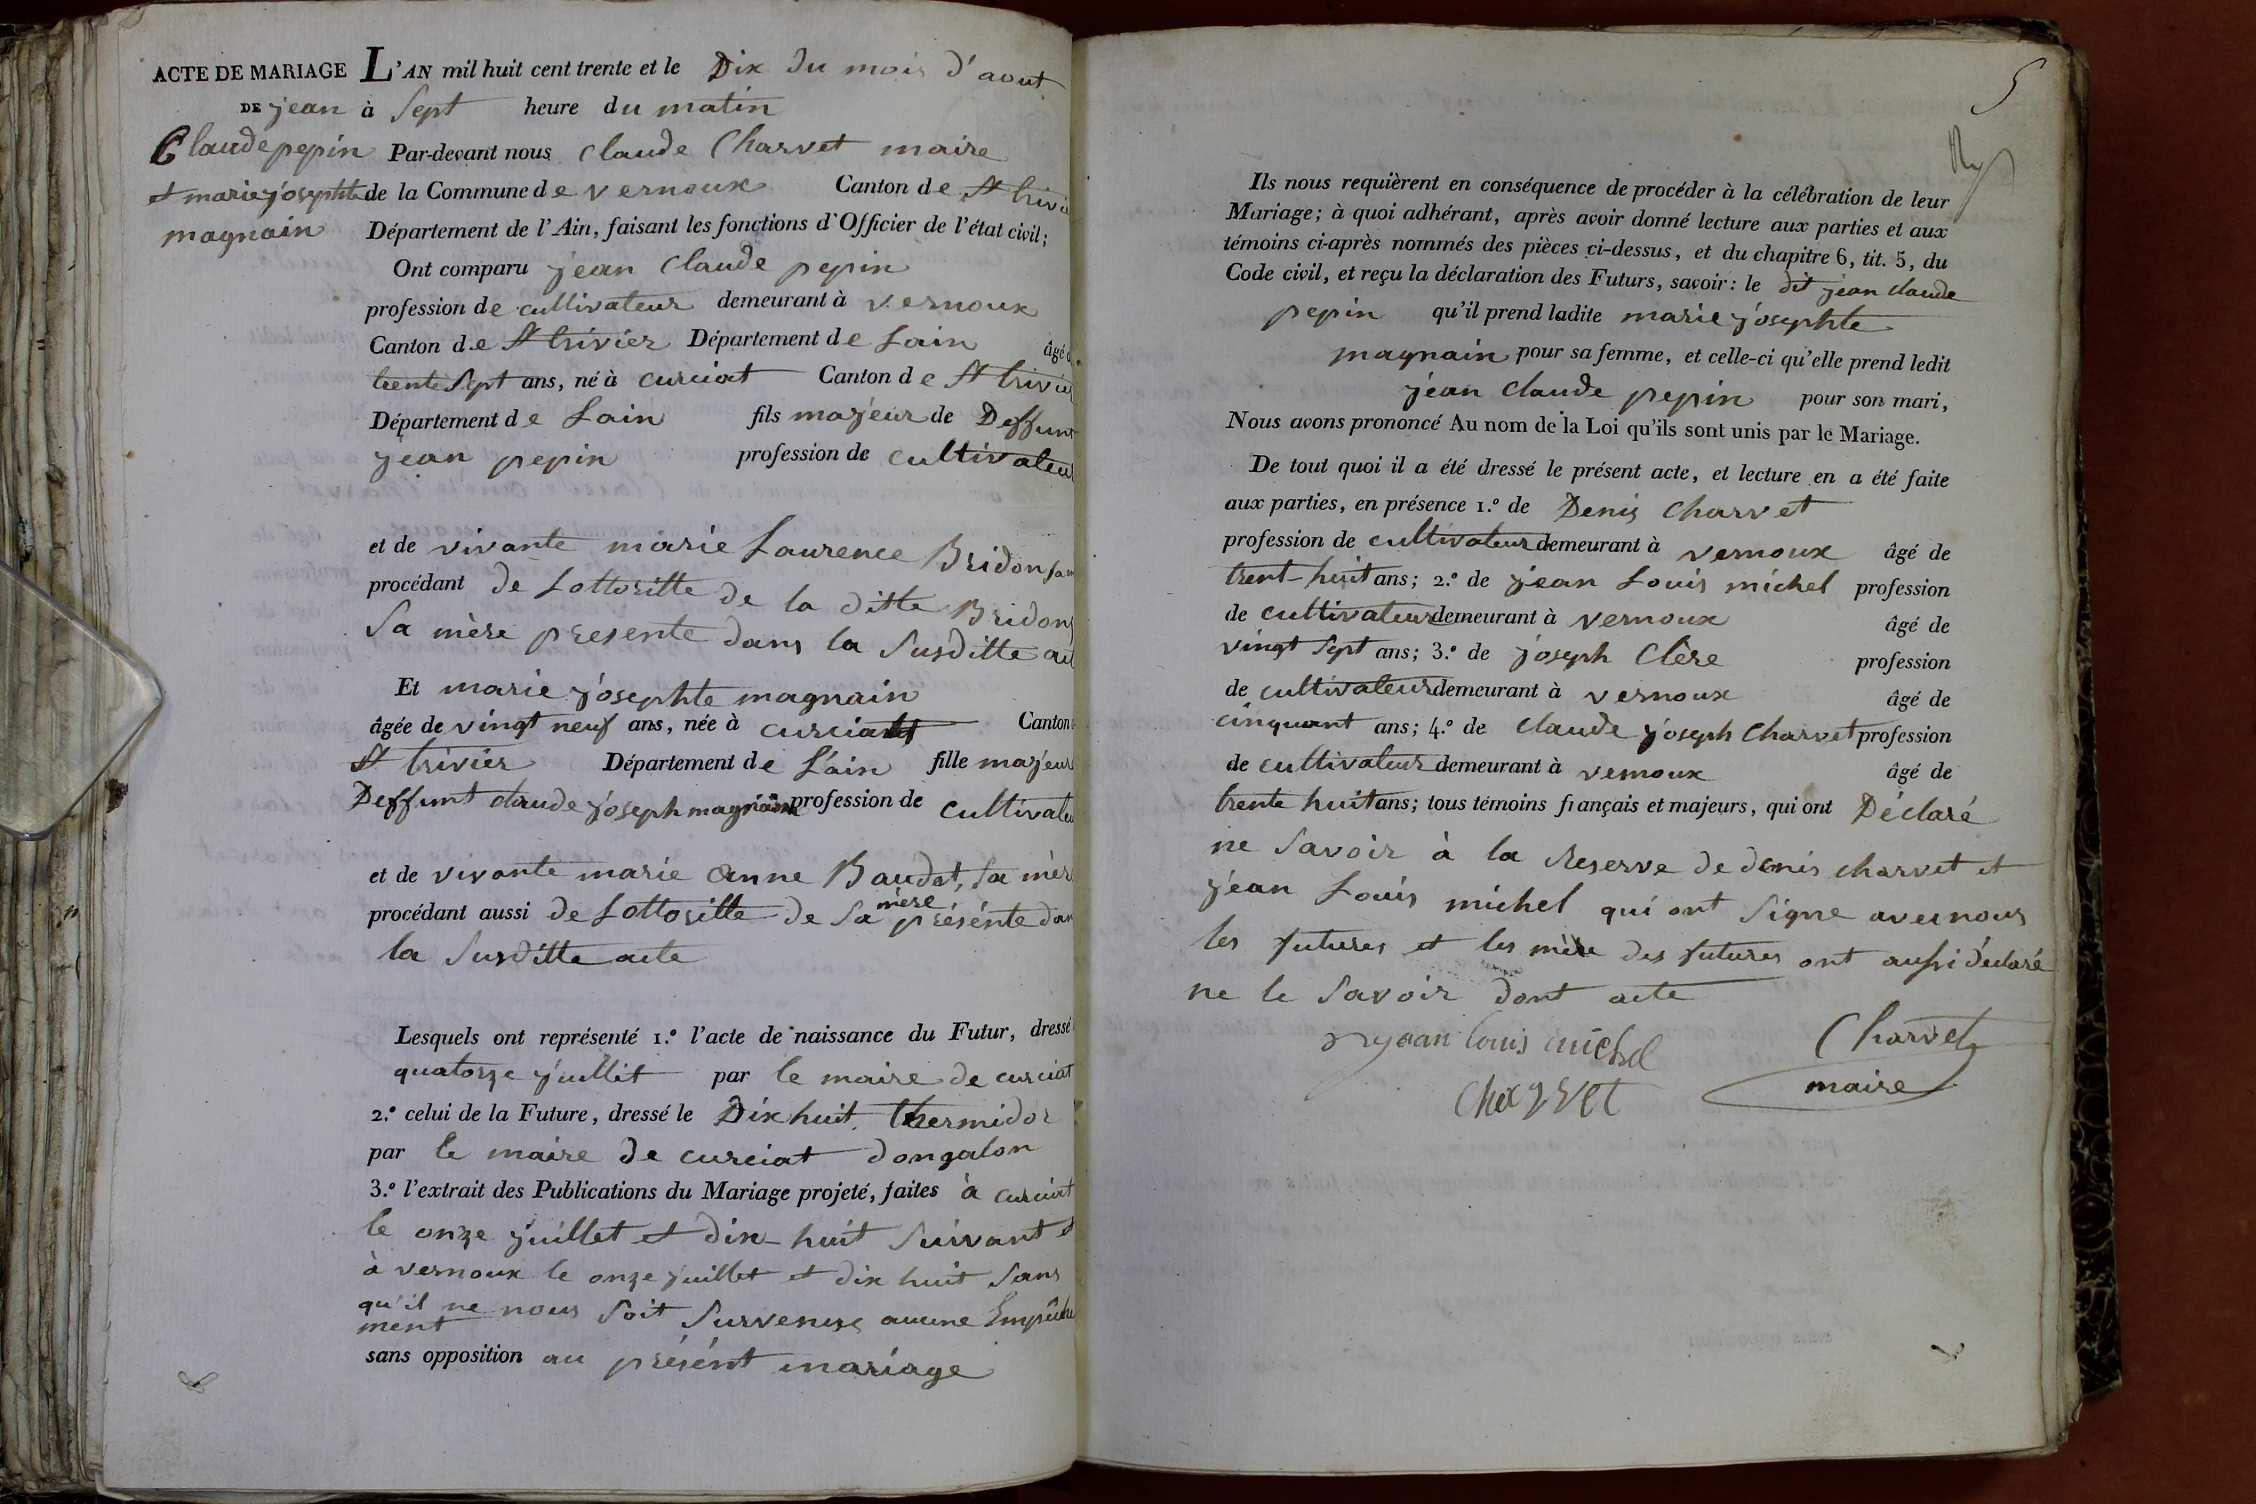 ACTE DE MARIAGE
DE jean
Claude pepin
et marie josephte
magnain
L'AN mil huit cent trente et le Dix du mois d'aout
à Sept heure du matin
Par-devant nous Claude Charvet maire
de la Commune de vernoux Canton de St trivie
Département de l'Ain, faisant les fonctions d'Officier de l'état civil;
Ont comparu jean Claude pepin
profession de cultivateur demeurant à vernoux
Canton de St trivier Département de Lain âgé d
trente Sept ans, né à curciat Canton de St trivier
Département de Lain fils majeur de Deffunt
jean pepin profession de cultivateur
et de vivante marie Laurence Bridon
procédant de Lottositte de la ditte Bridon
Sa mère presente dans la Susditte act
Et marie josephte magnain
âgée de vingt neuf ans, née à curciat Canton
St trivier Département de L'ain fille majeur
Deffunt claude joseph magnain profession de cultivateu
et de vivante marie anne Baudet, sa mèr
procédant aussi de Lottositte de Sa mere présénte dan
la Susditte acte
Lesquels ont représenté 1.° l'acte de naissance du Futur, dressé
quatorze juillit par le maire de curciat
2.° celui de la Future, dressé le Dix huit thermidor
par le maire de curciat dongalon
3.° l'extrait des Publications du Mariage projeté, faites à curciat
le onze juillet et dix huit Suivant et
à vernoux le onze juillet et dix huit Sans
qu'il ne nous Soit Survenus aucune Empêche
ment
sans opposition au présént mariage
5
Ils nous requièrent en conséquence de procéder à la célébration de leur
Mariage; à quoi adhérant, après avoir donné lecture aux parties et aux
témoins ci-après nommés des pièces ci-dessus, et du chapitre 6, tit. 5, du
Code civil, et reçu la déclaration des Futurs, savoir: le dit jean claude
pepin qu'il prend ladite marie josephte
magnain pour sa femme, et celle-ci qu'elle prend ledit
jean claude pepin pour son mari,
Nous avons prononcé Au nom de la Loi qu'ils sont unis par le Mariage.
De tout quoi il a été dressé le présent acte, et lecture en a été faite
aux parties, en présence 1.° de Denis Charvet
profession de cultivateur demeurant à vernoux âgé de
trent-huit ans; 2.° de jean Louis michel profession
de cultivateur demeurant à vernoux âgé de
vingt Sept ans; 3.° de joseph Clère profession
de cultivateur demeurant à vernoux âgé de
cinquant ans; 4.° de claude joseph Charvet profession
de cultivateur demeurant à vernoux âgé de
trente huit ans; tous témoins français et majeurs, qui ont Déclaré
ne Savoir à la Reserve de denis charvet et
jean Louis michel qui ont Signe avec nous
les futures et les mère des futures ont aussi déclaré
ne le Savoir dont acte
jean louis michel
Charvet
maire
charvet